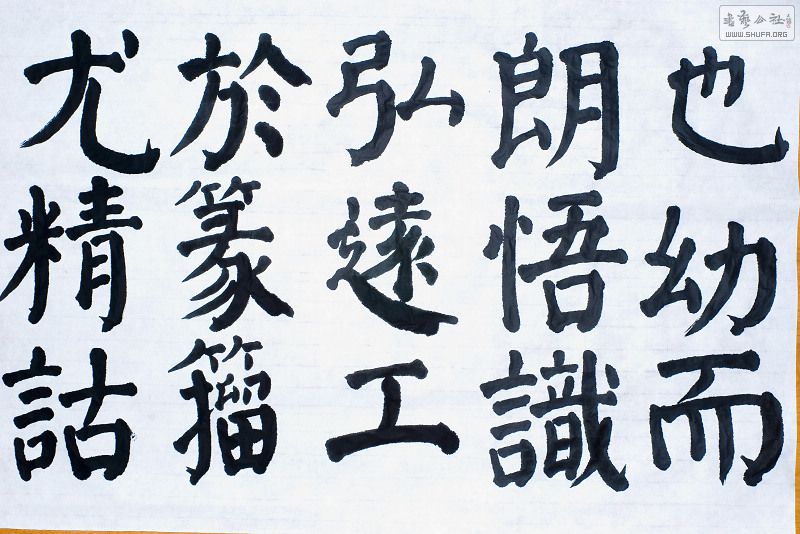 也幼而
朗悟識
弘遠工
於篆籀
尤精詁
書藝公社
WWW.SHUFA.ORG